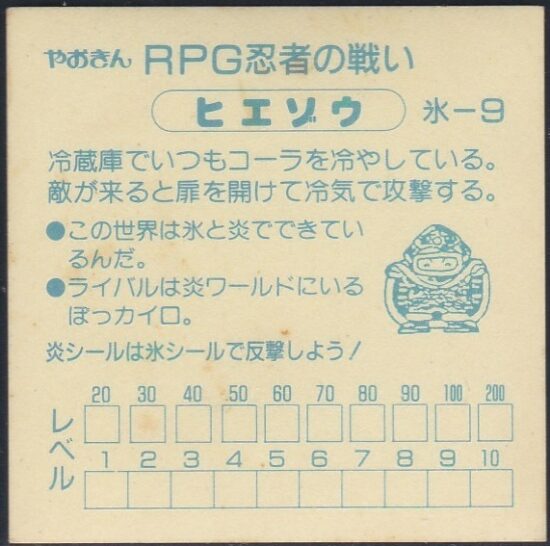 やおきん RPG忍者の戦い
ヒエゾウ 氷-9
冷蔵庫でいつもコーラを冷やしている。
敵が来ると扉を開けて冷気で攻撃する。
●この世界は氷と炎でできてい
るんだ。
●ライバルは炎ワールドにいる
ぽっカイロ。
炎シールは氷シールで反撃しよう!
20 30 40 50 60 70 80 90 100 200
レベル
1 2 3 4 5 6 7 8 9 10